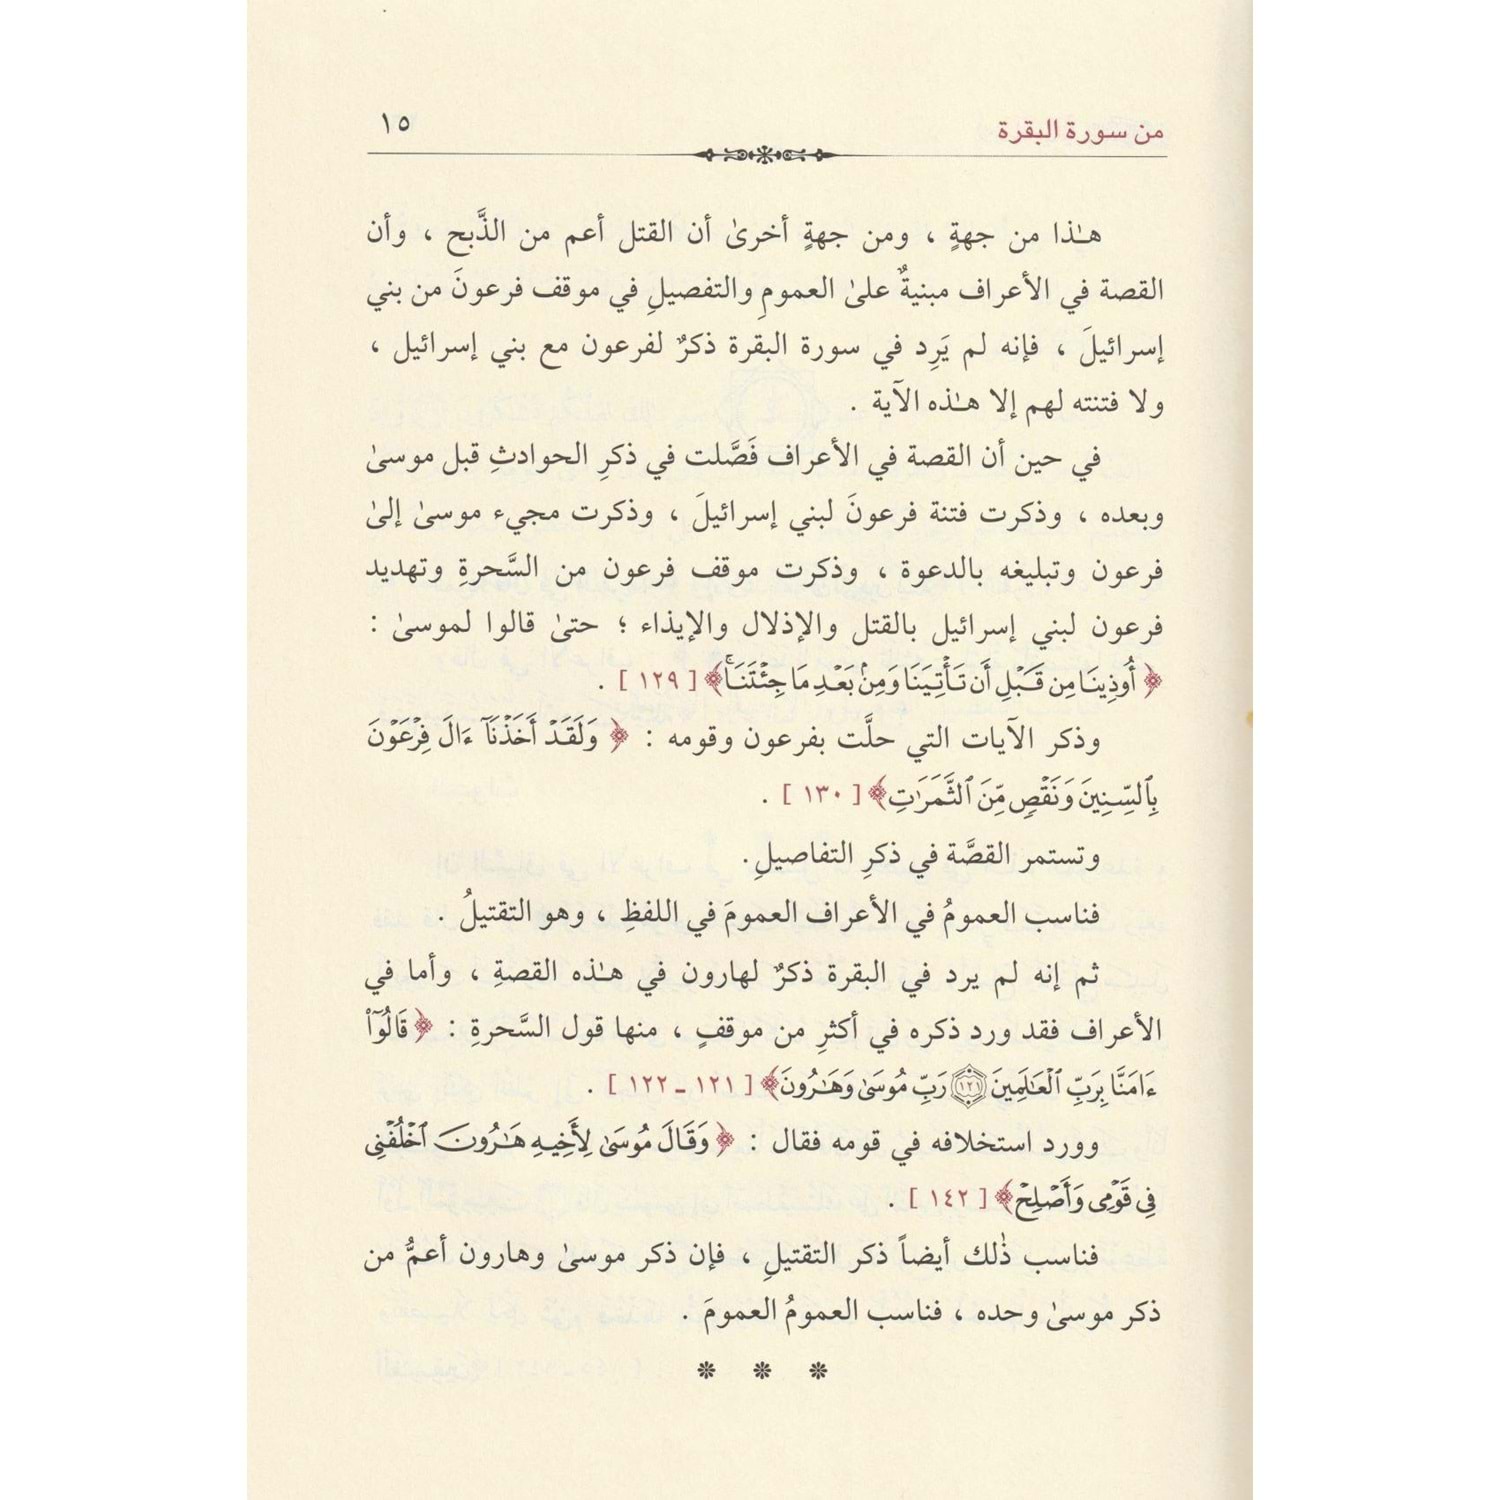 من سورة البقرة ١٥
هـٰذا من جهةٍ ، ومن جهةٍ أخرىٰ أن القتل أعم من الذَّبح ، وأن
القصة في الأعراف مبنيةٌ علىٰ العمومِ والتفصيلِ في موقف فرعونَ من بني
إسرائيلَ ، فإنه لم يَرِد في سورة البقرة ذكرٌ لفرعون مع بني إسرائيل ،
ولا فتنته لهم إلا هـٰذه الآية .
في حين أن القصة في الأعراف فَصَّلت في ذكرِ الحوادثِ قبل موسىٰ
وبعده ، وذكرت فتنة فرعونَ لبني إسرائيلَ ، وذكرت مجيء موسىٰ إلىٰ
فرعون وتبليغه بالدعوة ، وذكرت موقف فرعون من السَّحرةِ وتهديد
فرعون لبني إسرائيل بالقتل والإذلال والإيذاء ؛ حتىٰ قالوا لموسىٰ :
﴿ أُوذِينَا مِن قَبْلِ أَن تَأْتِيَنَا وَمِنۢ بَعْدِ مَا جِئْتَنَاۚ ﴾ [ ١٢٩ ] .
وذكر الآيات التي حلَّت بفرعون وقومه : ﴿ وَلَقَدْ أَخَذْنَآ ءَالَ فِرْعَوْنَ
بِٱلسِّنِينَ وَنَقْصٍ مِّنَ ٱلثَّمَرَٰتِ ﴾ [ ١٣٠ ] .
وتستمر القصَّة في ذكرِ التفاصيلِ.
فناسب العمومُ في الأعراف العمومَ في اللفظِ ، وهو التقتيلُ .
ثم إنه لم يرد في البقرة ذكرٌ لهارون في هـٰذه القصةِ ، وأما في
الأعراف فقد ورد ذكره في أكثرِ من موقفٍ ، منها قول السَّحرةِ : ﴿ قَالُوٓا۟
ءَامَنَّا بِرَبِّ ٱلْعَـٰلَمِينَ ١٢١ رَبِّ مُوسَىٰ وَهَـٰرُونَ ﴾ [ ١٢١ ـ ١٢٢ ] .
وورد استخلافه في قومه فقال : ﴿ وَقَالَ مُوسَىٰ لِأَخِيهِ هَـٰرُونَ ٱخْلُفْنِى
فِى قَوْمِى وَأَصْلِحْ ﴾ [ ١٤٢ ] .
فناسب ذٰلك أيضاً ذكر التقتيلِ ، فإن ذكر موسىٰ وهارون أعمُّ من
ذكر موسىٰ وحده ، فناسب العمومُ العمومَ .